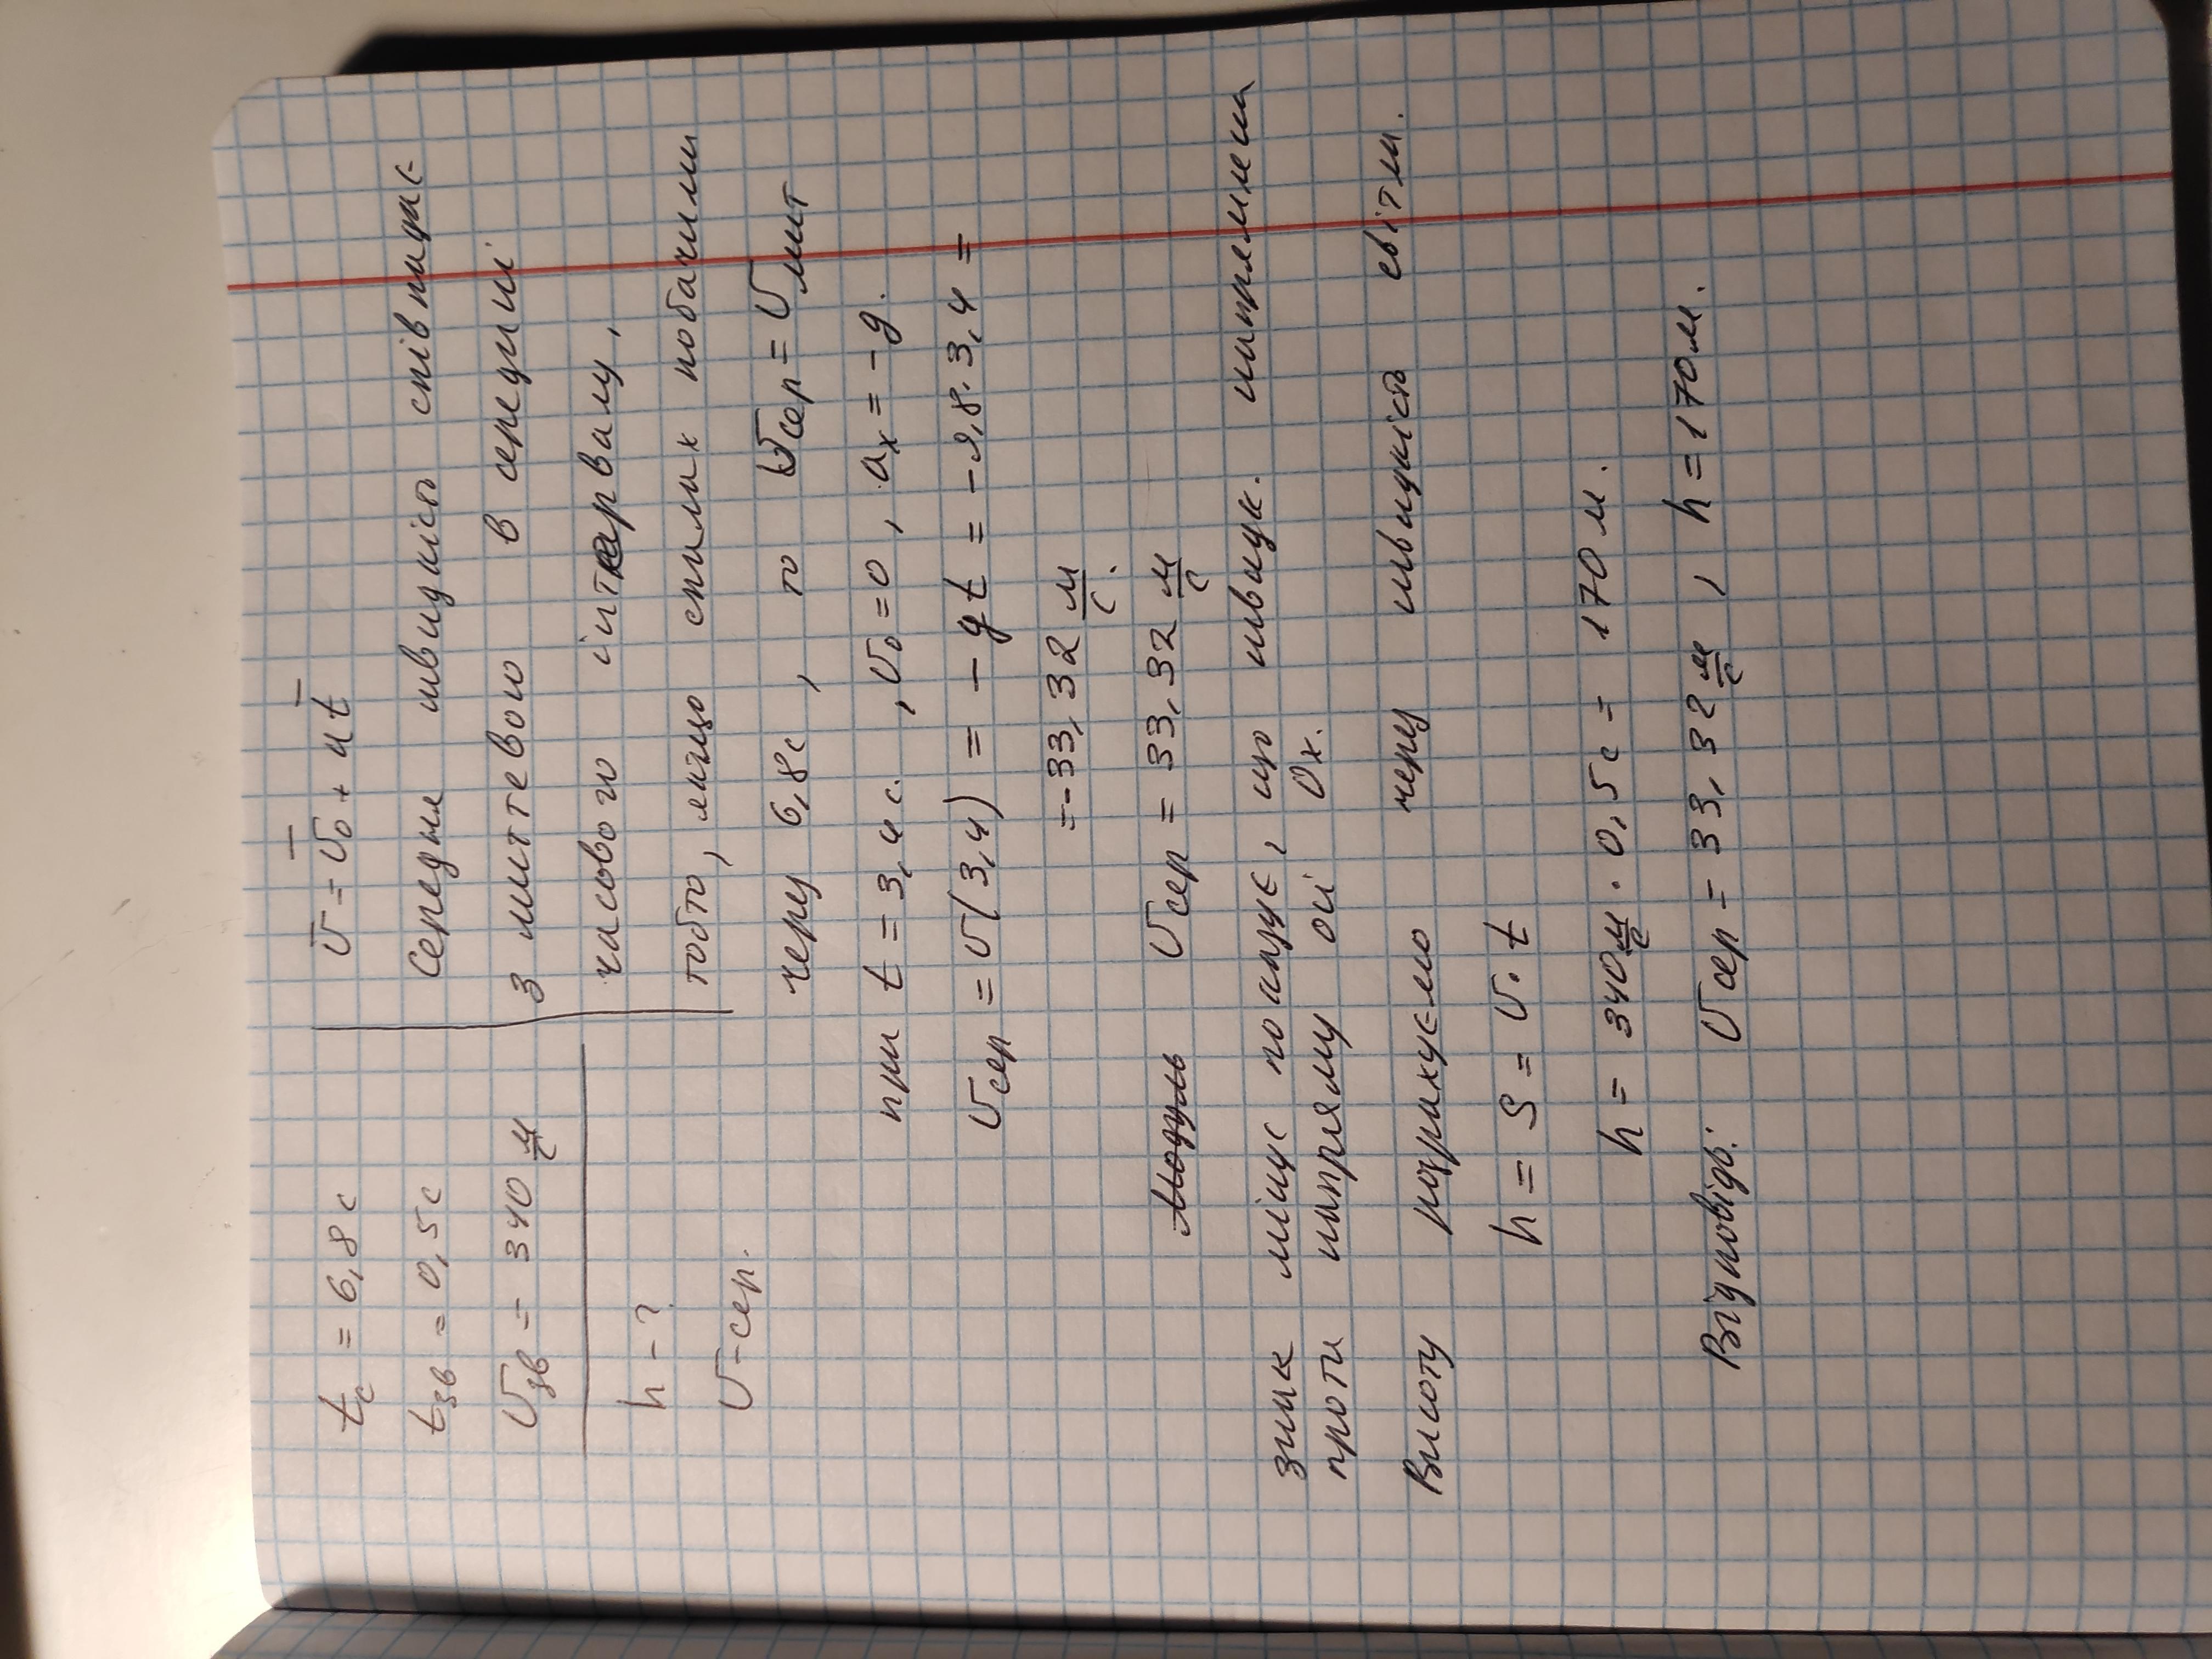 t_c = 6,8 c
t_зв = 0,5 c
υ_зв = 340 м/c
h - ?
υ - сер.
υ̅ = υ̅₀ + a t̅
Середня швидкість співпадає
з миттєвою в середині
часового інтервалу,
тобто, якщо спалах побачили
через 6,8c, то υсер = υмит
при t = 3,4 c. , υ₀ = 0, aₓ = -g.
υсер = υ(3,4) = - gt = -9,8·3,4 =
= -33,32 м/c.
Модуль υсер = 33,32 м/c
знак мінус показує, що швидк. напрямлена
проти напряму осі Ox.
Висоту порахуємо через швидкість світла.
h = S = υ·t
h = 340 м/c · 0,5 c = 170 м.
Відповідь: υсер = 33,32 м/c , h = 170м.